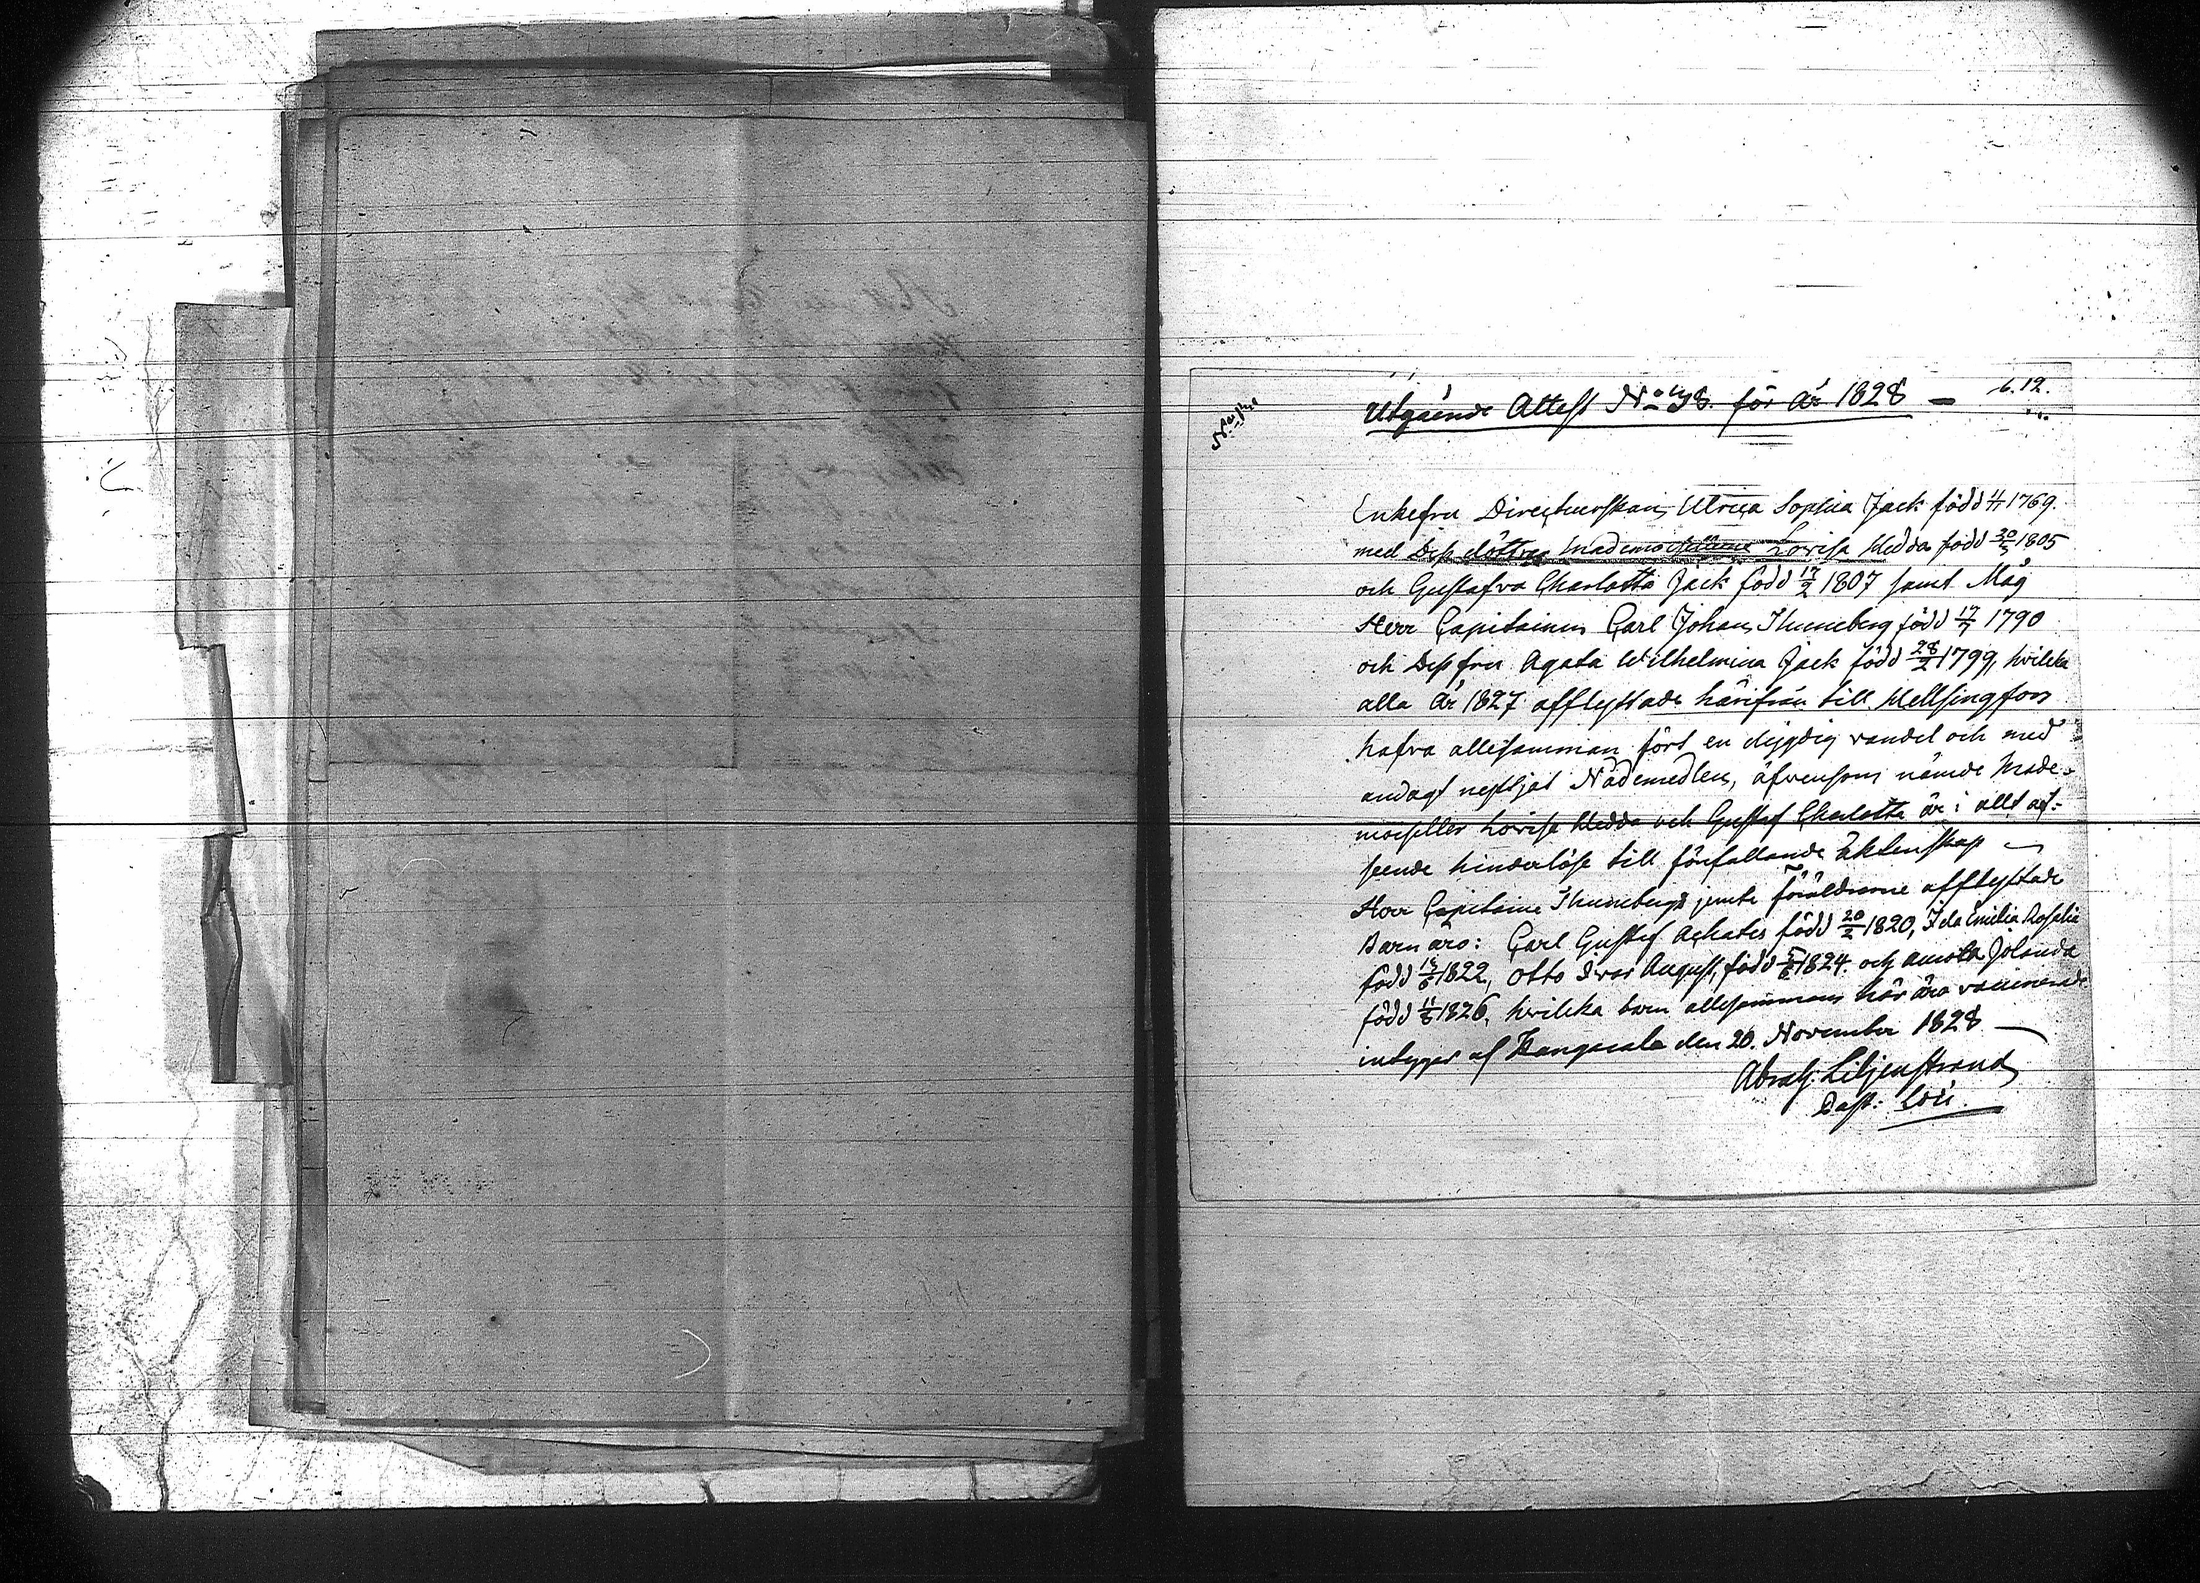 Utgående Attest No 48. för år 1828 — 6. 12.
Enkefru Directeurskan Ulrica Sophia Jack född 4/11 1769.
med Dess döttrar Mademoisellerne Lovisa Hedda född 30/5 1805
och Gustafva Charlotta Jack född 17/2 1807 samt Måg
Herr Capitainen Carl Johan Thuneberg född 17/7 1790
och Dess fru Agata Wilhelmina Jack född 28/2 1799, hvilka
alla år 1827 afflyttade härifrån till Hellsingfors
hafva allesamman fört en dygdig vandel och med
andagt nyttjat Nådemedlen, äfvensom nämde Made-
moiseller Lovisa Hedda och Gustaf Charlotta är i allt af-
seende hinderlöse till förefallande Äktenskap —
Herr Capitaine Thunebergs jemte Föräldrarne afflyttade
Barn äro: Carl Gustaf Achates född 20/2 1820, Ida Emilia Rosalia
född 1822, Otto Ivar August, född 1824. och Jolanda
född 1826, hvilka barn allesammans här äro vaccinerade
intygar af Kangasala den 20. November 1828 —
Abrah: Liljenstrand
Past: Loci.